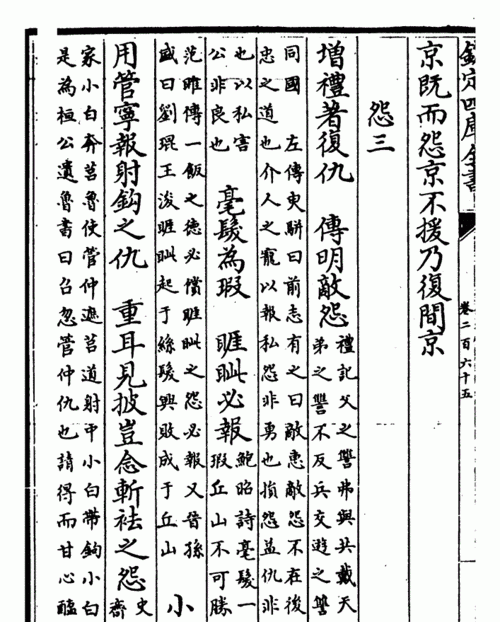 欽定四庫全書
卷二百六十五
京既而怨京不援乃復間京
怨三
增禮著復仇 傳明敵怨
禮記父之讐弗與共戴天
弟之讐不反兵交遊之讐
同國 左傳臾駢曰前志有之曰敵惠敵怨不在後
忠之道也介人之寵以報私怨非勇也損怨益仇非
也以私害
公非良也
毫髮為瑕 睚眦必報
鮑昭詩毫髮一
瑕丘山不可勝
范雎傳一飯之德必償睚眦之怨必報又晉孫
盛曰劉琨王浚睚眦起于絲髮興敗成于丘山
小
用管寧報射鈎之仇 重耳見披豈念斬祛之怨
史
齊
家小白奔莒魯使管仲遮莒道射中小白帶鈎小白
是為桓公遺魯書曰召忽管仲仇也請得而甘心醢